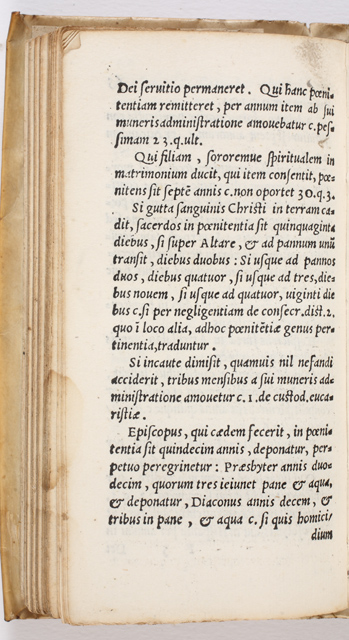 Dei ſeruitio permaneret. Qui hanc pœni-
tentiam remitteret, per annum item ab ſui
muneris adminiſtratione amouebatur c. peſ-
ſimam 23. q. ult.
Qui filiam, sororemue ſpiritualem in
matrimonium ducit, qui item conſentit, pœ-
nitens ſit ſeptē annis c. non oportet 30. q. 3.
Si gutta ſanguinis Chriſti in terram ca-
dit, ſacerdos in pœnitentia ſit quinquaginta
diebus, ſi ſuper Altare, & ad pannum unū
tranſit, diebus duobus: Si uſque ad pannos
duos, diebus quatuor, ſi uſque ad tres, die-
bus nouem, ſi uſque ad quatuor, uiginti die
bus c. ſi per negligentiam de conſecr. diſt. 2.
quo ī loco alia, adhoc pœnitētiæ genus per-
tinentia, traduntur.
Si incaute dimiſit, quamuis nil nefandi
acciderit, tribus menſibus a ſui muneris ad-
miniſtratione amouetur c. 1. de cuſtod. euca-
riſtiæ.
Epiſcopus, qui cædem fecerit, in pœni-
tentia ſit quindecim annis, deponatur, per-
petuo peregrinetur: Præsbyter annis duo-
decim, quorum tres ieiunet pane & aqua,
& deponatur, Diaconus annis decem, &
tribus in pane, & aqua c. ſi quis homici-
dium